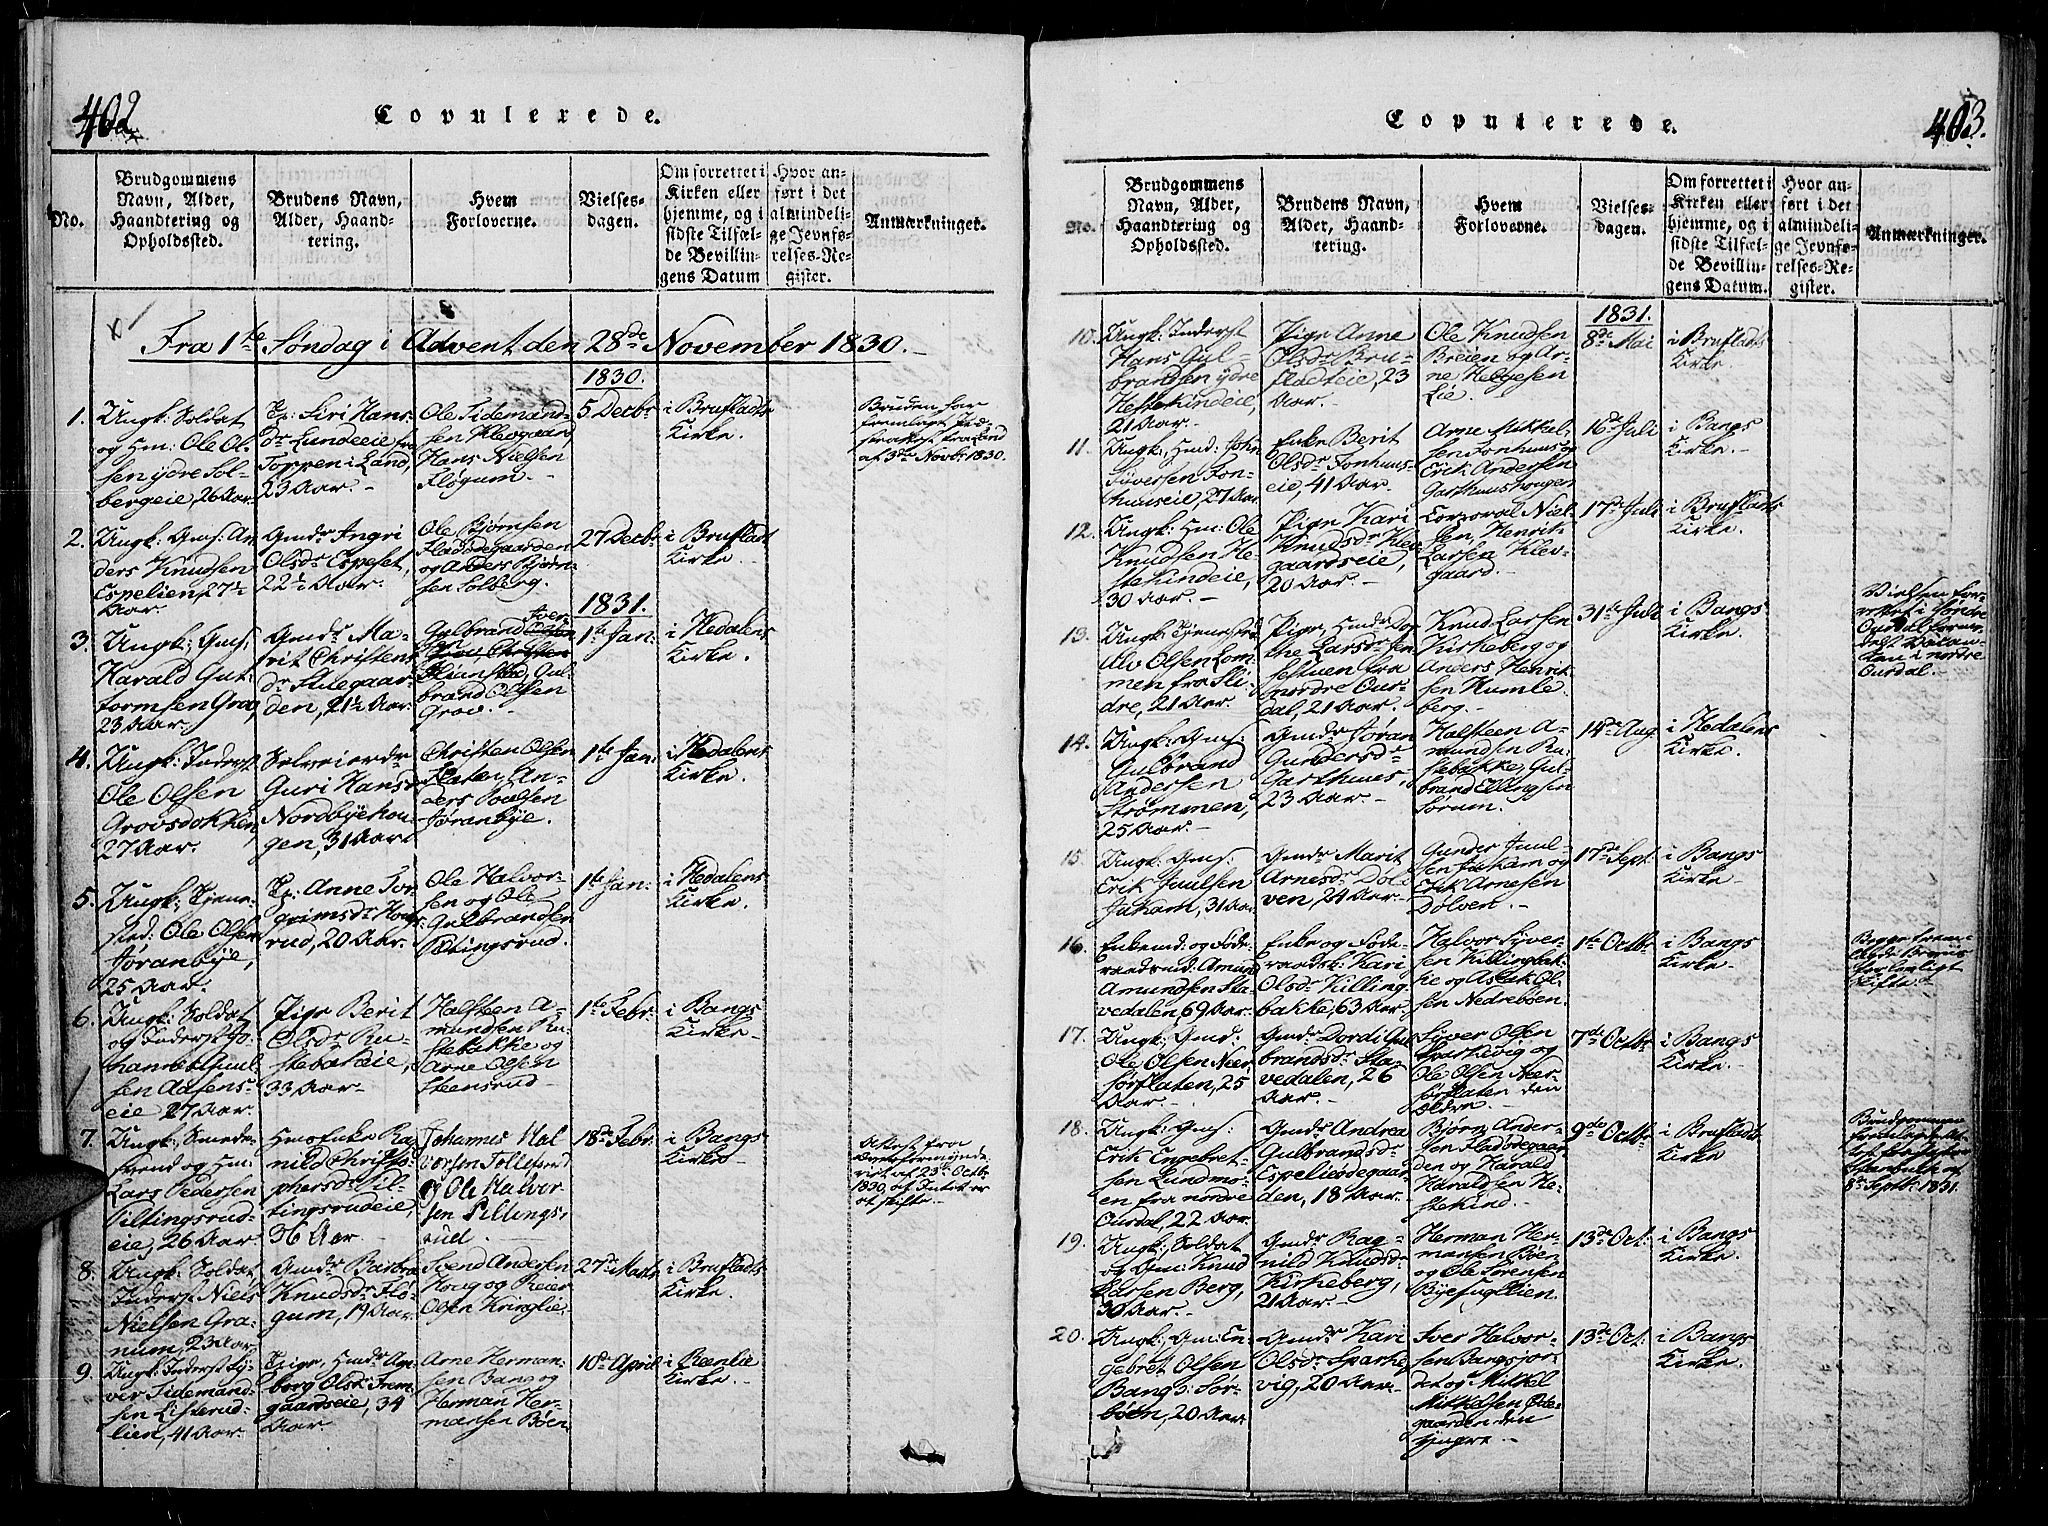 402
Copulerede.
No.
Brudgommens
Navn, Alder,
Haandtering og
Opholdssted.
Brudens Navn,
Alder, Haand-
tering.
Hvem
Forloverne.
Vielses-
dagen.
Om forrettet i
Kirken eller
hjemme, og i
sidste Tilfæl-
de Bevillin-
gens Datum
Hvor an-
ført i det
almindeli-
ge Jevnfø-
relses-Re-
gister.
Anmærkninger.
Fra 1ste Søndag i Advent, den 28de November 1830.
1830.
1.
Ungk: Soldat
og Hm: Ole Ol-
sen ydre Sol-
bergeie, 26 Aar.
Pi: Siri Hans-
dr Lundeeie fra
Toppen i Land,
23 Aar. -
Ole Tidemand-
sen Klevgaard
Hans Nielsen
Fløgum. -
5 Decbr
i Bruflads
Kirke.
Bruden har
fremlagt
fra Land
af 3de Novbr 1830.
2.
Ungk: Gms: An-
ders Knudsen
Espelien, 27½
Aar.
Gmdr Ingri
Olsdr Espeset,
22½ Aar.
Ole Bjørnsen
Fladødegaarden
og Anders Bjørn-
sen Solberg.
27 Decbr
i Bruflads
Kirke.
1831.
3.
Ungk: Gms:
Harald Gut-
tormsen Grov,
23 Aar.
Gmdr Ma-
rit Christens-
dr Skuegaar-
den, 21½ Aar.
Gulbrand Iver-
sen
Gul-
brand Olsen
Grov. -
1ste Jan:
i Hedalens
Kirke.
4.
Ungk: Inderst
Ole Olsen
Grovsdokken,
27 Aar.
Selveierdr
Guri Hansdr
Nordbyehou-
gen, 31 Aar.
Christen Olsen
Flaten, An-
ders Poulsen
Jøranbye.
1ste Jan:
i Hedalens
Kirke.
5.
Ungk: Tjene-
sted. Ole Olsen
Jøranbye,
25 Aar.
Pi: Anne Tor-
grimsdr Houg-
rud, 20 Aar.
Ole Halvor-
sen og Ole
Gulbrandsen
Pætingsrud.
1ste Jan:
i Hedalens
Kirke.
6.
Ungk: Soldat
og Inderst Jo-
hannes Juul-
sen Aasens-
eie 27 Aar.
Pige Berit
Olsdr Ru-
stebakeie,
33 Aar
Halsteen A-
mundsen Ru-
stebakke og
Arne Olsen
Steensrud
1ste Febr.
i Bangs
Kirke
7.
Ungk: Smede-
svend og Hm:
Lars Pedersen
Piltingsrud-
eie, 26 Aar
Hms Enke Rag-
nild Christo-
phersdr Pil-
tingsrudeie,
36 Aar
Johannes Hal-
vorsen Tollefsrud
og Ole Halvor-
sen Piltings-
rud.
18de Febr.
i Bangs
Kirke
Attest fra
Overformynde-
riet af 23de Octbr
1830, at Intet er
at skifte.
8.
Ungk: Soldat,
Inderst Niels
Nielsen Gra-
num, 23 Aar
Gmdr Barbra
Knudsdr Flø-
gum, 19 Aar.
Svend Andersen
Houg og Reier
Olsen Kringlie.
27de Marts
i Bruflads
Kirke.
9.
Ungk: Inderst Sy-
ver Tidemand-
sen Listerud-
lien, 41 Aar.
Pige, Hmdr Am-
borg Olsdr Frem-
gaardseie, 34
Aar.
Arne Herman-
sen Bang og
Herman Her-
mansen Bøen
10de April
i Reenlie
Kirke.
403.
Copulerede.
No.
Brudgommens
Navn, Alder,
Haandtering og
Opholdssted.
Brudens Navn,
Alder, Haand-
tering.
Hvem
Forloverne.
Vielses-
dagen.
Om forrettet i
Kirken eller
hjemme, og i
sidste Tilfæl-
de Bevillin-
gens Datum.
Hvor an-
ført i det
almindeli-
ge Jevnfø-
relses-Re-
gister.
Anmærkninger.
1831.
10.
Ungk: Inderst
Hans Gul-
brandsen ydre
Hestekindeie,
21 Aar.
Pige Anne
Olsdr Bru-
fladeie, 23
Aar.
Ole Knudsen
Breien og Ar-
ne Helgesen
Lie.
8de Mai
i Bruflads
Kirke
11.
Ungk: Hmd: John
Syversen Fon-
huuseie, 27 Aar.
Enke Berit
Olsdr Fonhuus-
eie, 41 Aar.
Arne Mikkel-
sen Fonhuus og
Erik Andersen
Garthuushougen
16de Juli
i Bangs
Kirke. -
12.
Ungk: Hm: Ole
Knudsen He-
stekindeie,
30 Aar.
Pige Kari
Knudsdr Klev-
gaardseie,
20 Aar.
Corporal Niel-
sen, Henrik
Larsen Klev-
gaard.
17de Juli
i Bruflads
Kirke.
13.
Ungk: Tjenestk:
Alv Olsen Lom-
men fra Sli-
dre, 21 Aar.
Pige, Hmdr Dor-
the Larsdr Jen-
sestuen fra
nordre Our-
dal, 21 Aar.
Knud Larsen
Kirkeberg og
Anders Henrik-
sen Humle-
berg.
31te Juli
i Bangs
Kirke.
Vielsen for-
rettet i søndre
Ourdal
i nordre
Ourdal.
14.
Ungk: Gms:
Gulbrand
Andersen
Strømmen,
25 Aar.
Gmdr Jøran
Gundersdr
Garthuus,
23 Aar.
Halsteen A-
mundsen Ru-
stebakke, Gul-
brand Ellingsen
Sørum.
14de Aug
i Hedalens
Kirke.
15.
Ungk: Gms:
Erik Juulsen
Jukam, 31 Aar.
Gmdr Marit
Arnesdr Døl-
ven, 24 Aar.
Gunder Juul-
sen Jukam og
Erik Arnesen
Dølven.
17de Sept.
i Bangs
Kirke
16.
Enkemd: og Føde-
raadsmd: Amund
Amundsen Sta-
vedalen, 69 Aar.
Enke og Føde-
raadsk: Kari
Olsdr Killing-
bakke, 63 Aar.
Halvor Syver-
sen Killingbak-
ke og Aslak Ol-
sen Nedrebøen.
1ste Octbr
i Bangs
Kirke
Begge frem-
lagde Beviis
for lovligt
Skifte.
17.
Ungk: Gmd:
Ole Olsen Neer-
sørflaten, 25
Aar.
Gmdr Dordi Gul-
brandsdr Sta-
vedalen, 26
Aar.
Syver Olsen
Sparkevig og
Ole Olsen Neer-
sørflaten den
Ældre.
7de Octbr
i Bangs
Kirke
18.
Ungk: Gms:
Erik Engebret-
sen Lundmo-
en fra nordre
Ourdal, 22 Aar.
Gmdr Andrea
Gulbrandsdr
Espeliødegaar-
den, 18 Aar.
Bjørn Ander-
sen Fladødegaar-
den og Harald
Haraldsen He-
stekind.
9de Octbr
i Bruflads
Kirke
Brudgommen
fremlagde At-
test fra
af
8de Septbr 1831.
19.
Ungk: Soldat
og Gm: Knud
Larsen Berg,
30 Aar.
Gmdr Rag-
nild Knudsdr
Kirkeberg,
21 Aar.
Herman Her-
mansen Bøen
og Ole Sørensen
Byefugllien.
13de Oct.
i Bangs
Kirke
20.
Ungk: Gm: En-
gebret Olsen
Bangs: Sør-
bøen, 20 Aar.
Gmdr Kari
Olsdr Sparke-
vig, 20 Aar.
Iver Halvor-
sen Bangsjor-
det og Mikkel
Mikkelsen Øde-
gaarden den
yngre.
13de Oct.
i Bangs
Kirke.